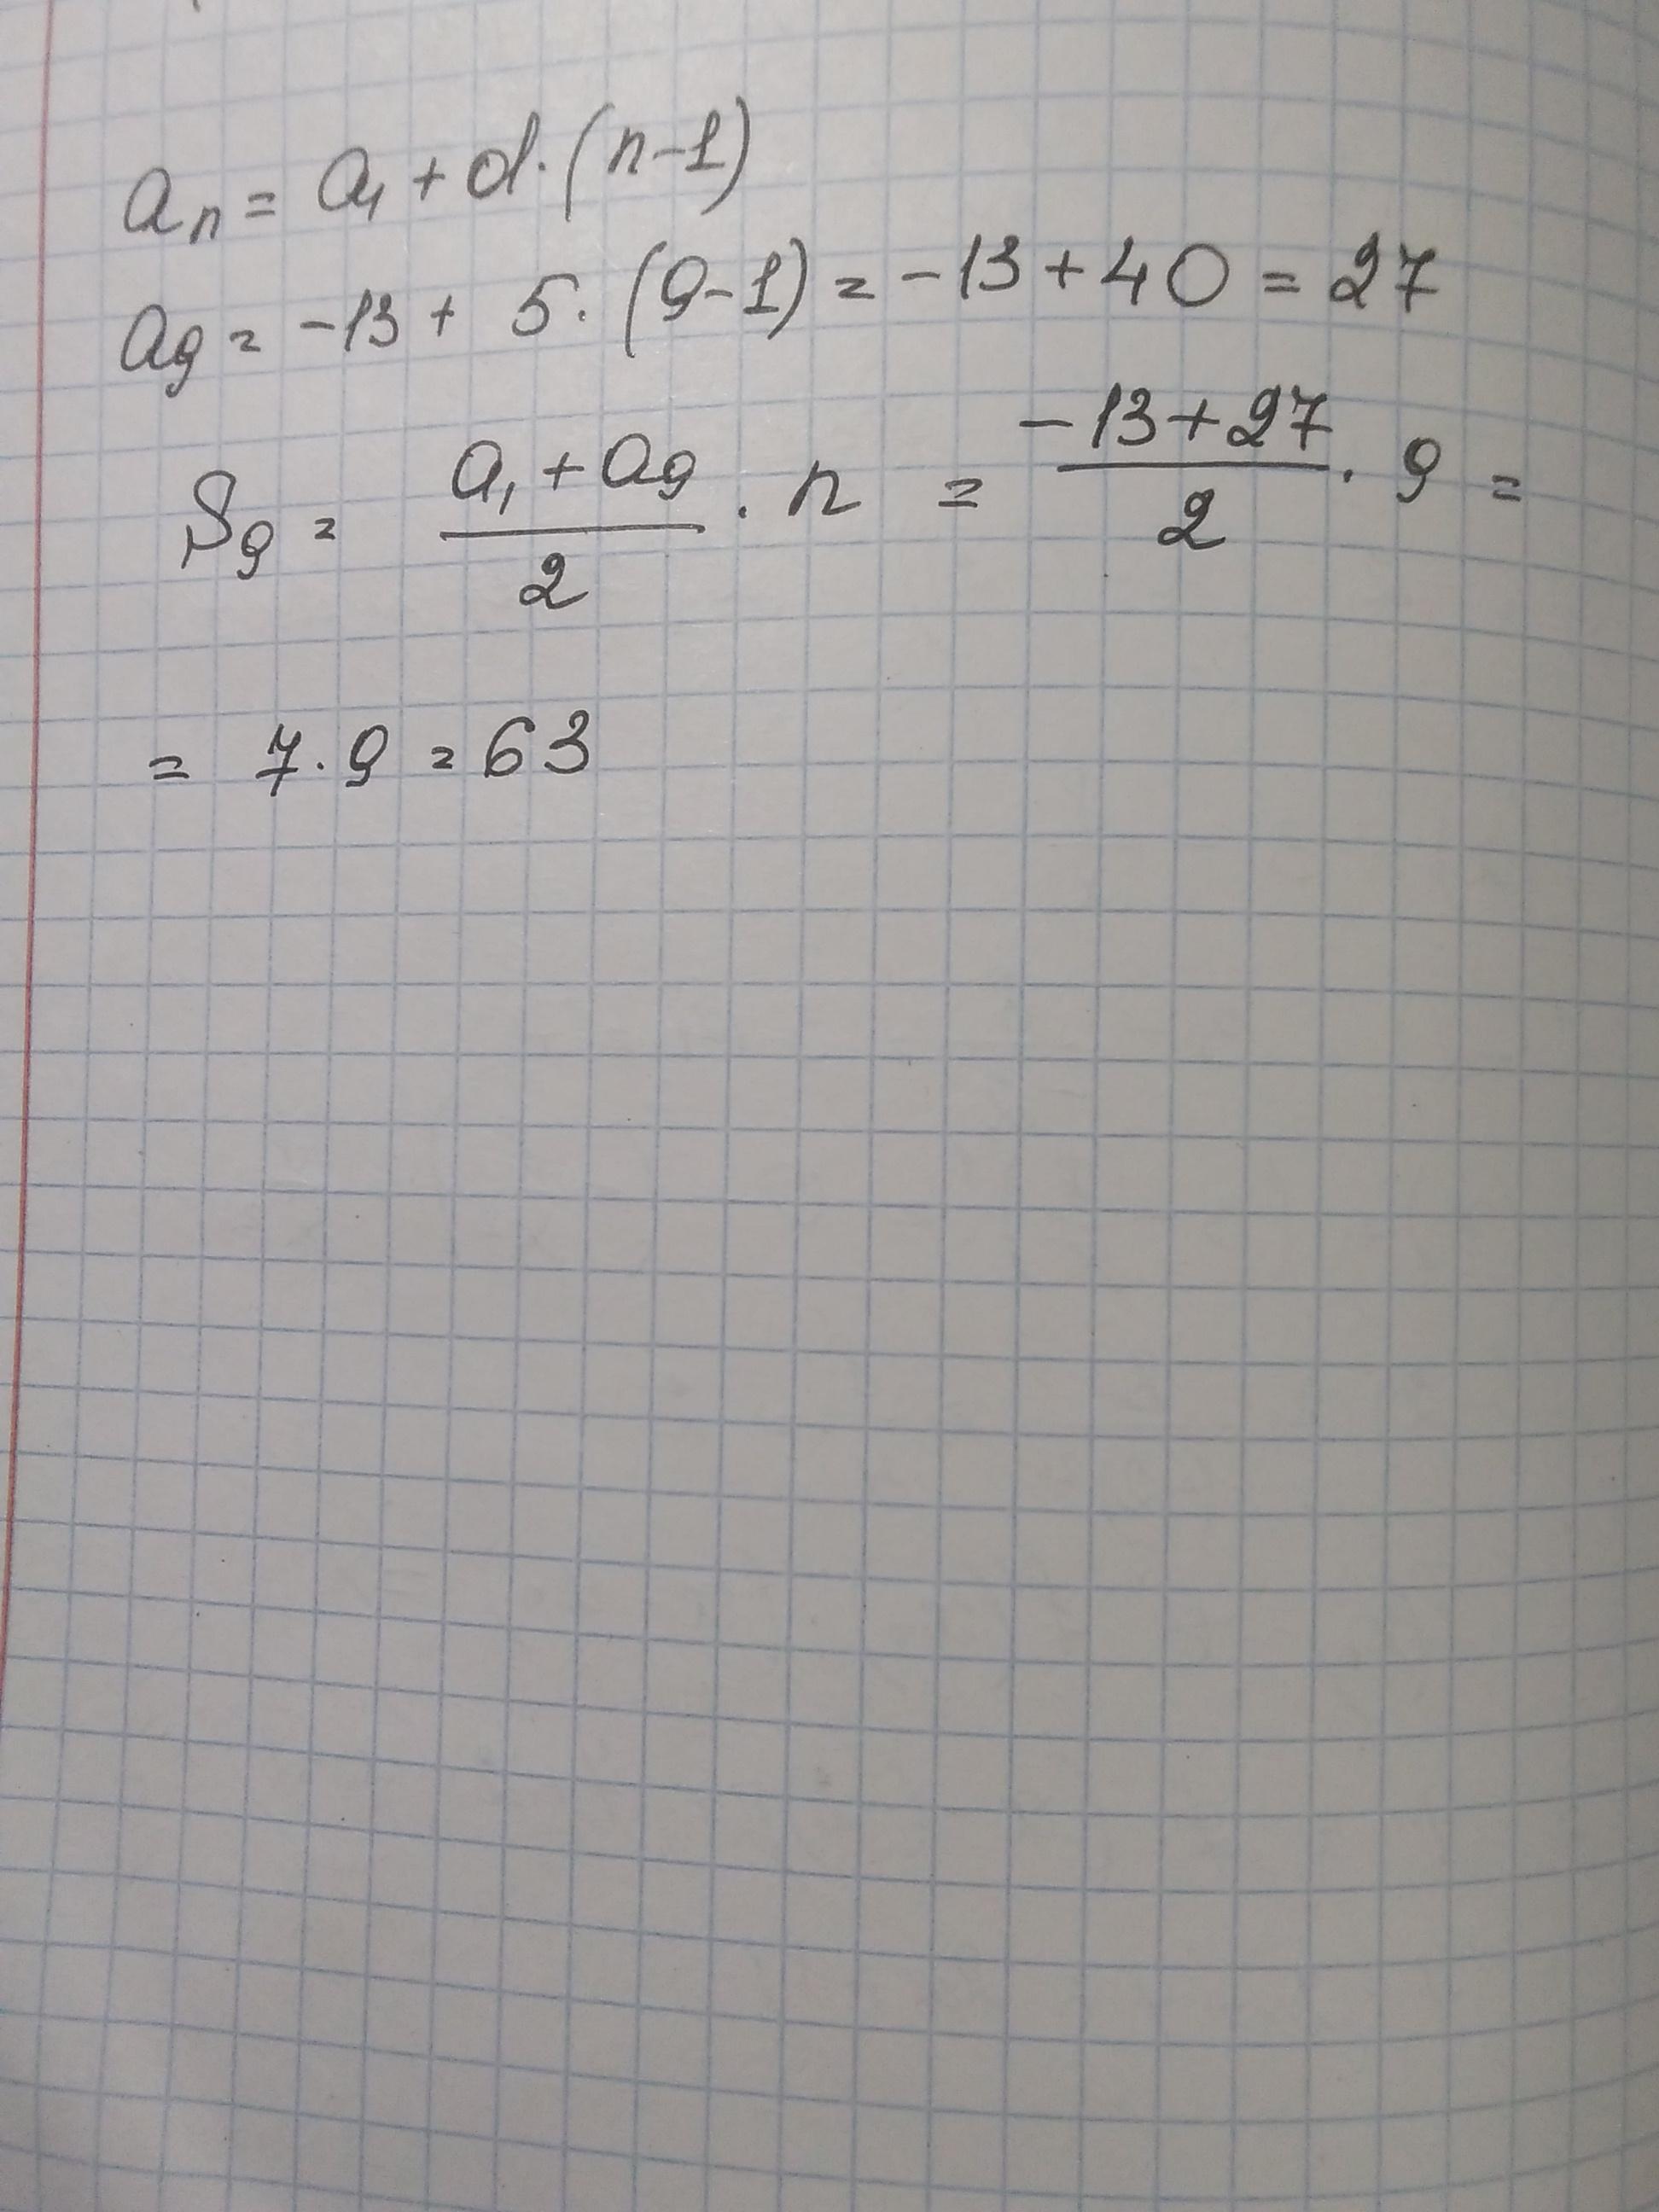 aₙ = a₁ + d · (n-1)
a₉ = -13 + 5 · (9-1) = -13 + 40 = 27
S₉ = (a₁ + a₉)/2 · n = (-13 + 27)/2 · 9 =
= 7 · 9 = 63